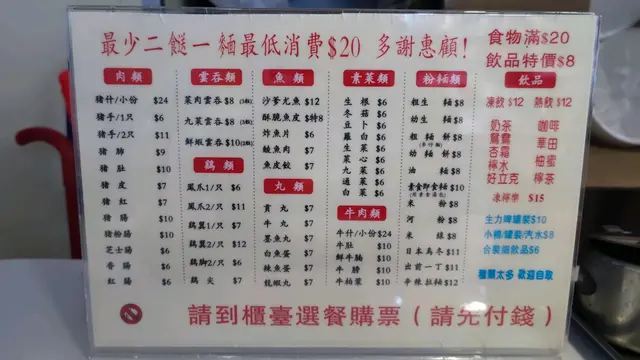 最少二餸一麵最低消費$20 多謝惠顧!
食物滿$20
飲品特價$8
肉類
豬什/小份 $24
豬手/1只 $6
豬手/2只 $11
豬肺 $9
豬肚 $10
豬皮 $7
豬紅 $7
豬腸 $10
豬粉腸 $10
芝士腸 $6
香腸 $6
紅腸 $6
雲吞類
菜肉雲吞 $8
九菜雲吞 $8
鮮蝦雲吞 $10
鷄類
鳳爪1/只 $6
鳳爪2/只 $11
鷄翼1/只 $7
鷄翼2/只 $12
鷄脚2/只 $6
鷄尖 $7
魚類
沙爹尤魚 $12
酥脆魚皮 $特8
炸魚片 $6
鯪魚肉 $7
魚皮餃 $7
丸類
貢丸 $7
牛丸 $7
墨魚丸 $7
白魚蛋 $7
辣魚蛋 $7
龍蝦丸 $7
素菜類
生根 $6
冬菇 $6
豆卜 $6
蘿白 $6
生菜 $6
菜心 $6
九菜 $6
通菜 $6
白菜 $6
牛肉類
牛什/小份 $24
牛肚 $10
鮮牛腩 $10
牛膀 $10
牛柏葉 $10
粉麵類
粗生麵 $8
幼生麵 $8
粗麵餅 $8
幼麵餅 $8
油麵 $8
素食即食麵 $10
米粉 $8
河粉 $8
米線 $8
日本烏冬 $11
出前一丁 $11
辛辣拉麵 $12
飲品
凍飲 $12 熱飲 $12
奶茶 咖啡
鴛鴦 華田
杏霜 柚蜜
檸水 檸茶
好立克
凍檸樂 $15
生力啤罐裝 $10
小樽/罐裝/汽水 $8
合裝紙飲品 $6
種類太多 歡迎自取
請到櫃臺選餐購票(請先付錢)